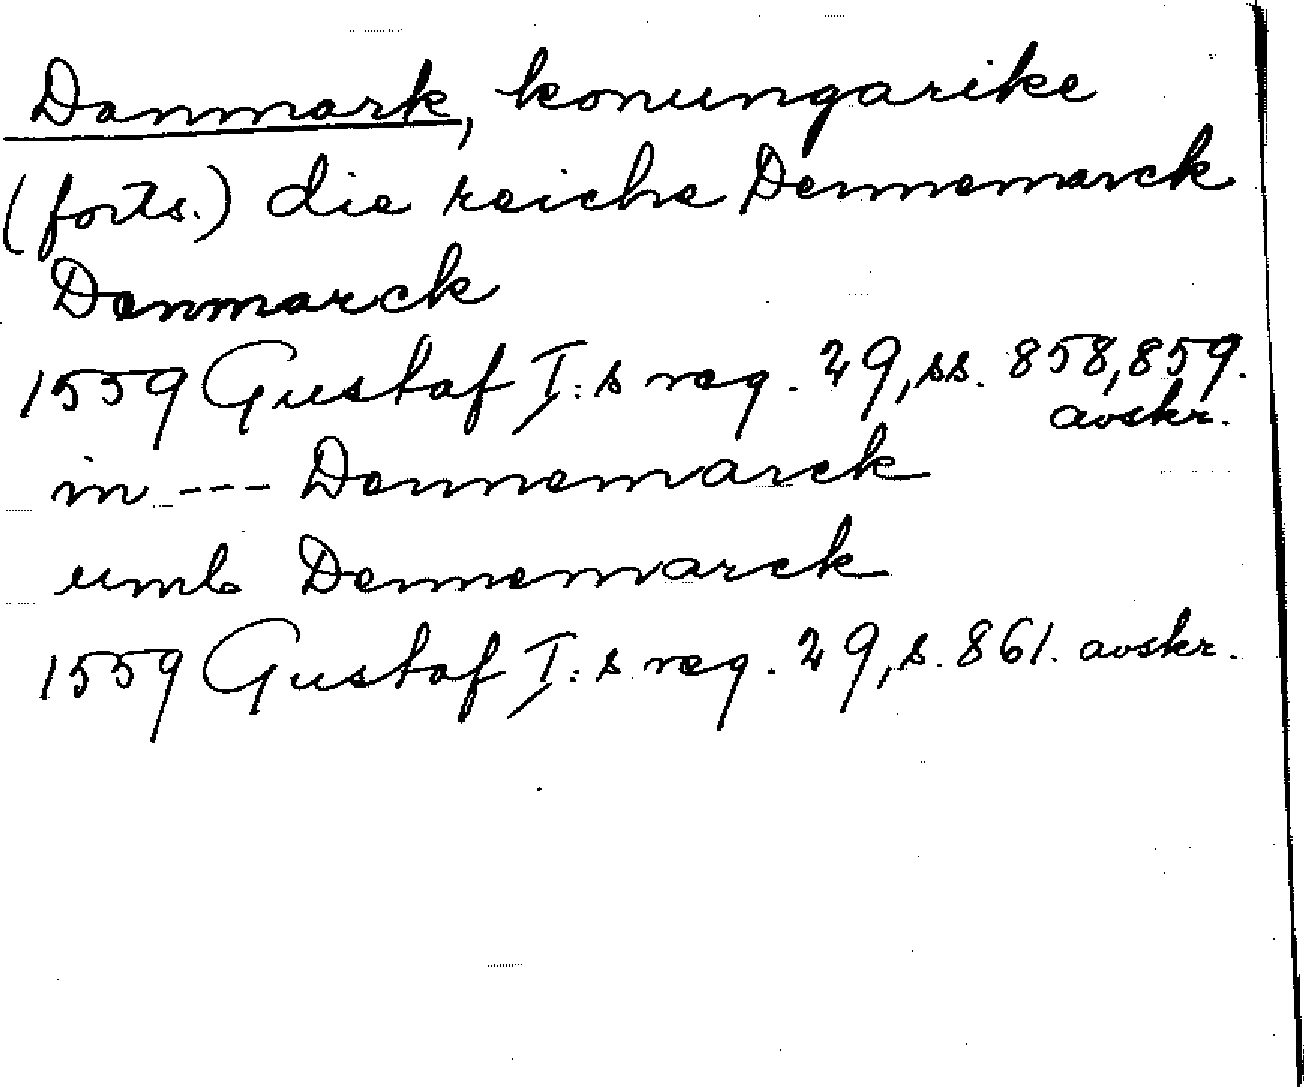 Danmark, konungarike
(forts.) die reiche Dennemarck
Denmarck
1559 Gustaf I:s reg. 29, ss. 858, 859.
avskr.
in --- Dennemarck
umb Dennemarck
1559 Gustaf I:s reg. 29, s. 861. avskr.